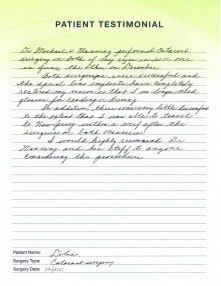 PATIENT TESTIMONIAL
Dr Michael H Manning performed Cataract
surgery on both of my eyes
one
in December.
Both surgeries were successful and
the special lens implants have completely
restored my vision so that I no longer need
glasses for reading or driving.
In addition, there was very little discomfort
to the extent that I was able to travel
to New Jersey within a week after the
surgeries on both occasions.
I would highly recommend Dr
Manning and his staff to anyone
considering the procedure
Patient Name:
Surgery Type: Cataract surgery
Surgery Date: